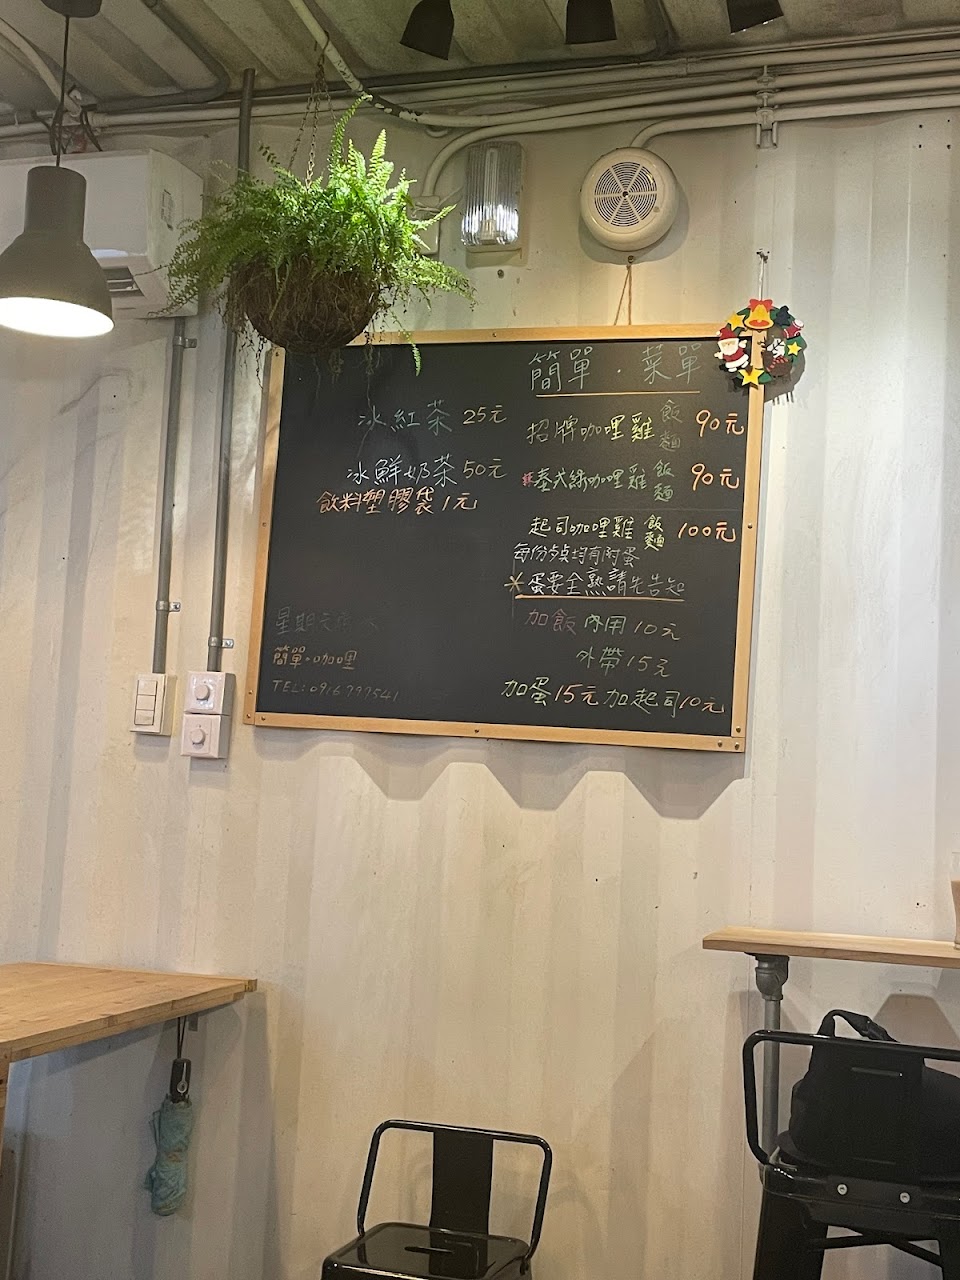 簡單·菜單
冰紅茶 25元
冰鮮奶茶 50元
飲料塑膠袋 1元
招牌咖哩雞 飯 麵 90元
泰式綠咖哩雞 飯 麵 90元
起司咖哩雞 飯 麵 100元
每份餐均有附蛋
*蛋要全熟請先告知
加飯 內用 10元
外帶 15元
加蛋 15元 加起司 10元
星期天
簡單·咖哩
TEL:0916797541